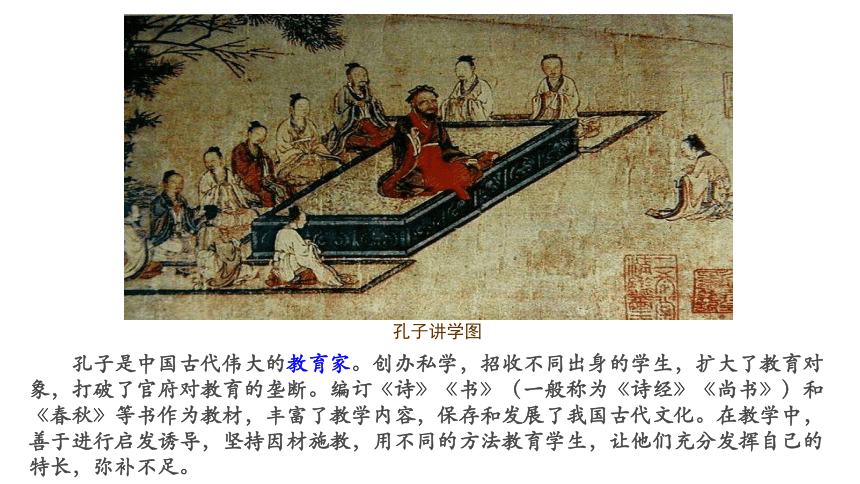 孔子讲学图
孔子是中国古代伟大的教育家。创办私学，招收不同出身的学生，扩大了教育对
象，打破了官府对教育的垄断。编订《诗》《书》（一般称为《诗经》《尚书》）和
《春秋》等书作为教材，丰富了教学内容，保存和发展了我国古代文化。在教学中，
善于进行启发诱导，坚持因材施教，用不同的方法教育学生，让他们充分发挥自己的
特长，弥补不足。